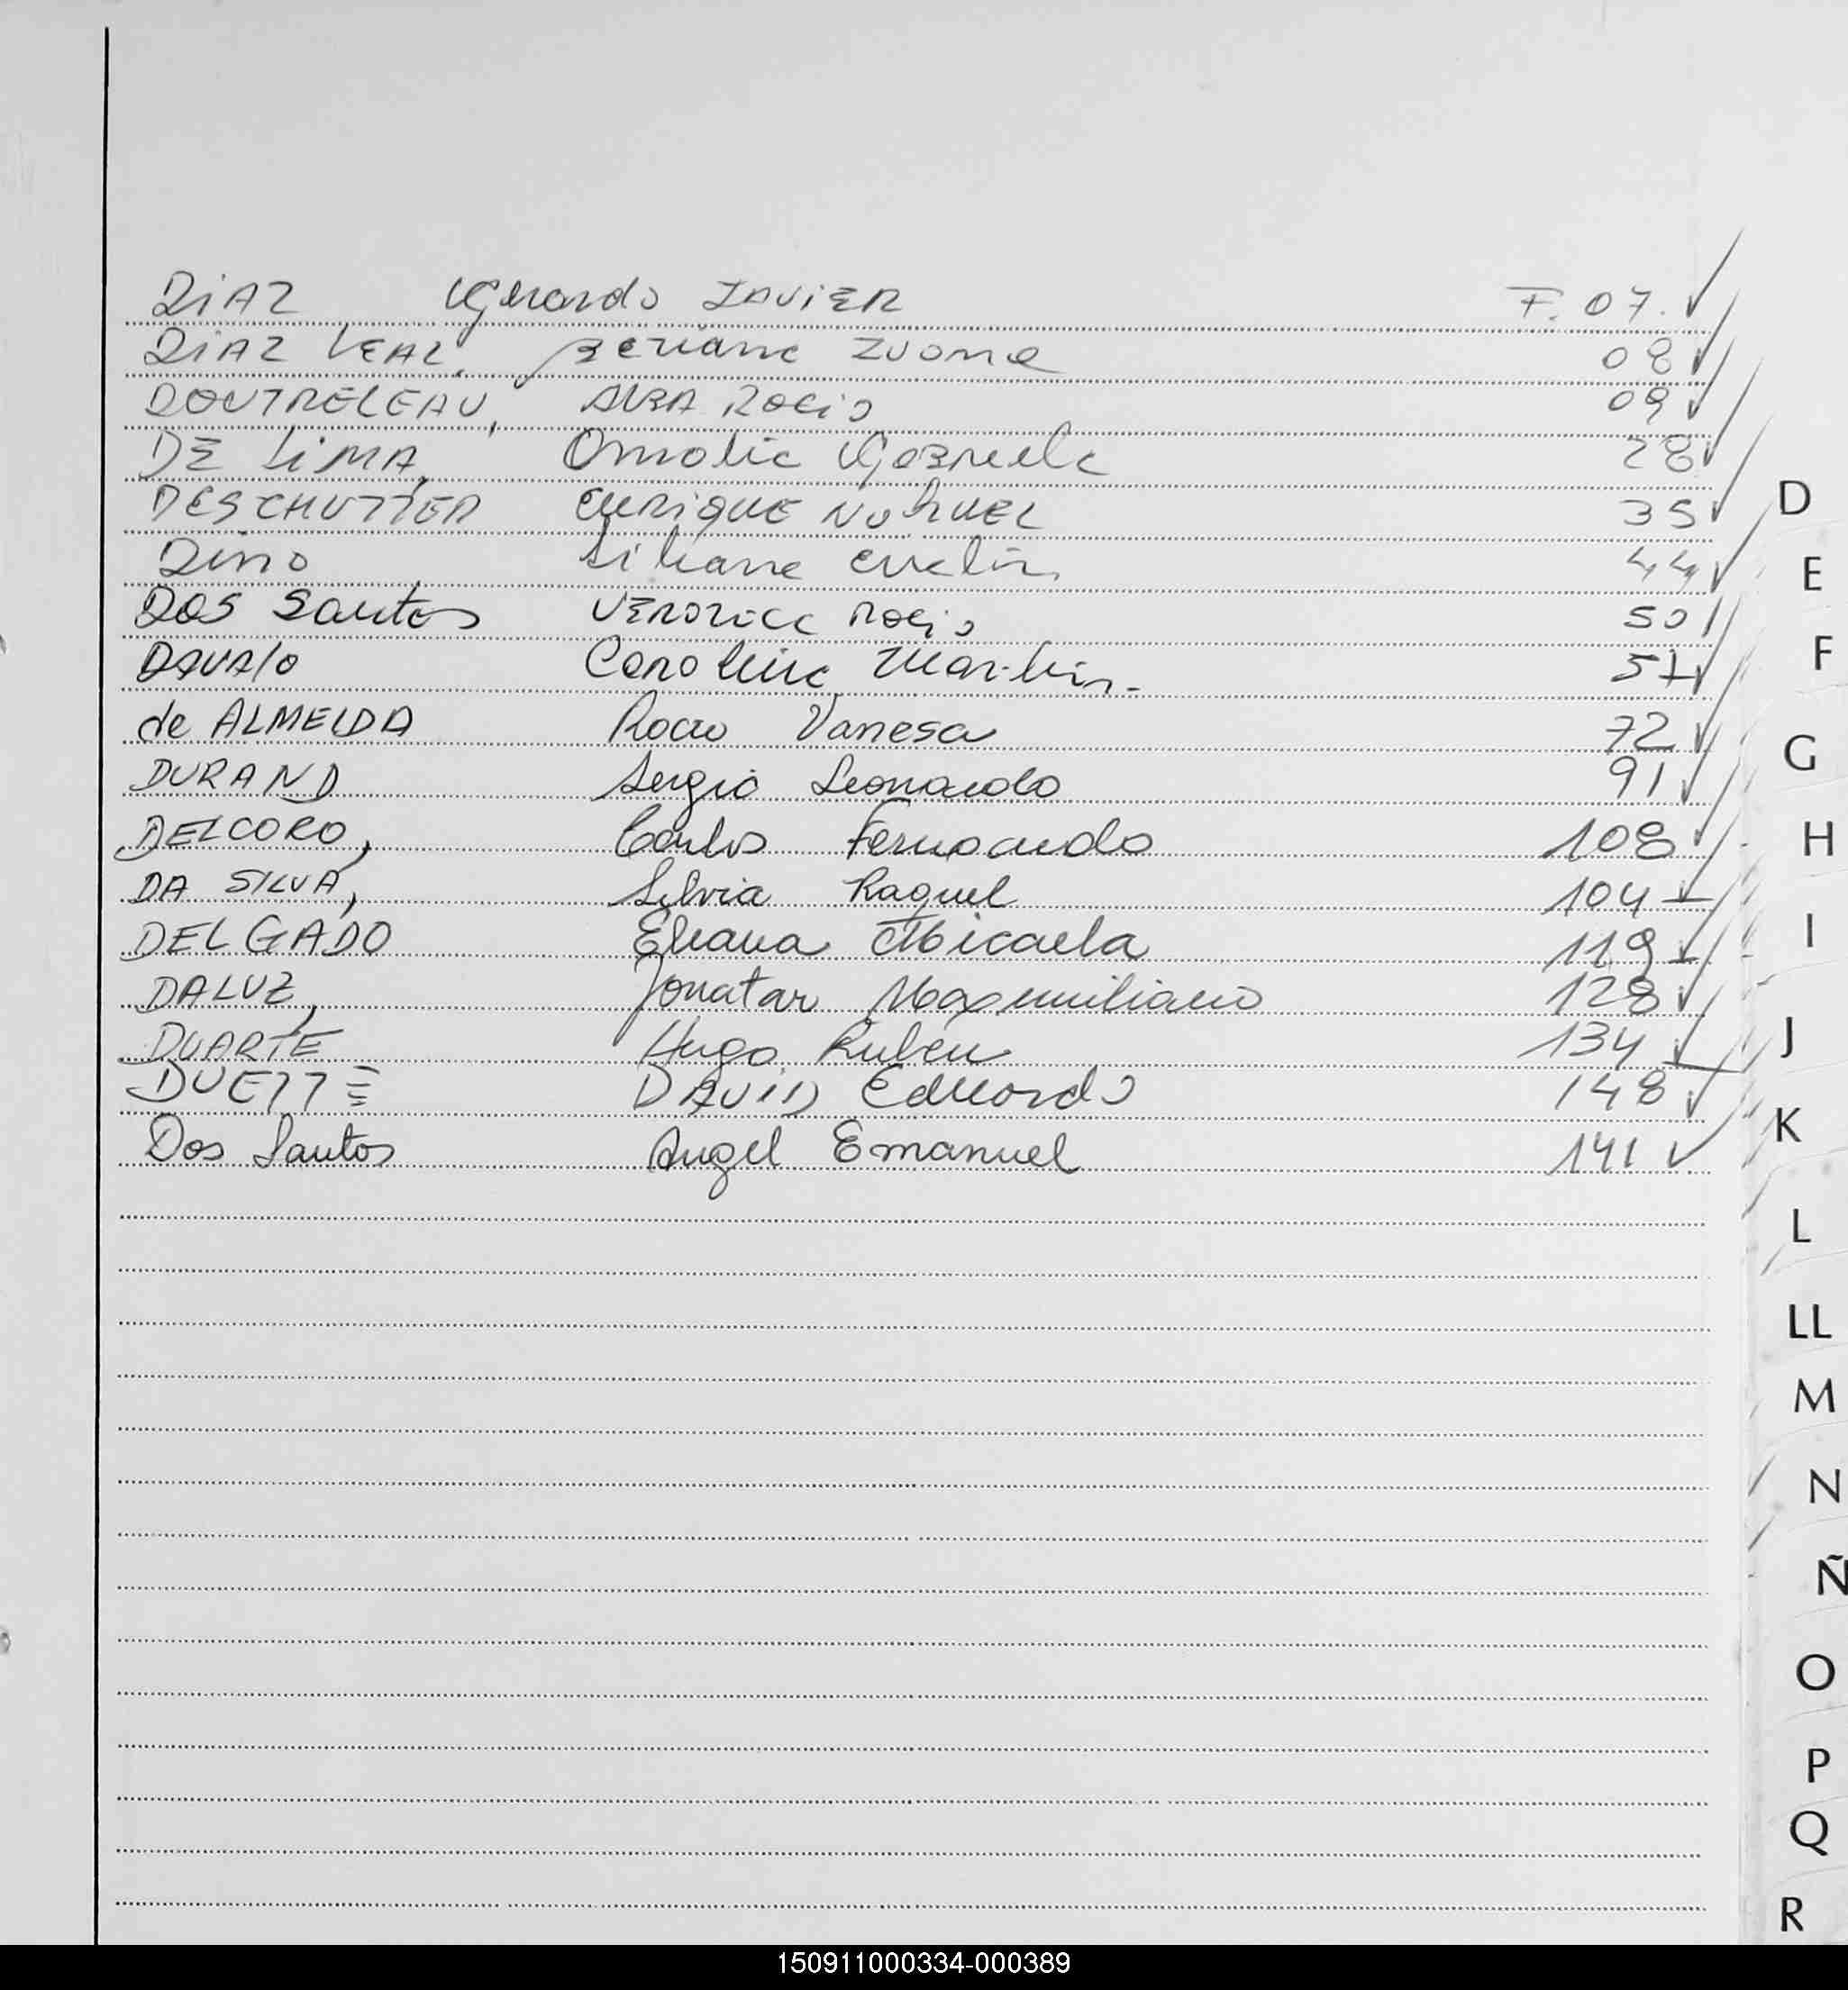 DIAZ Gerardo JAVIER F. 07.
DIAZ LEAL, 08
DOUTRELEAU, ALBA ROCIO 09
DE LIMA, Gabriela 28
DESCHUTTER ENRIQUE NAHUEL 35
Dino Liliana Evelin 44
DOS Santos VERONICA ROCIO 50
DAVALO Carolina 51
de ALMEIDA Rocio Vanesa 72
DURAND Sergio Leonardo 91
DELCORO, Carlos Fernando 108
DA SILVA, Silvia Raquel 104
DELGADO Eliana Micaela 119
DALUZ, Jonatan Maximiliano 128
DUARTE Hugo Ruben 134
DUETTE DAVID Eduardo 148
Dos Santos Angel Emanuel 141
D
E
F
G
H
I
J
K
L
LL
M
N
Ñ
O
P
Q
R
150911000334-000389